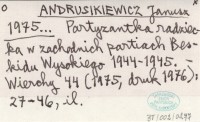 ANDRUSIKIEWICZ Janusz
1975... Partyzantka radziec-
ka w zachodnich partiach Bes-
kidu Wysokiego 1944-1945. -
Wierchy 44 (1975, druk 1976):
27-46; il.
BT/001/0297